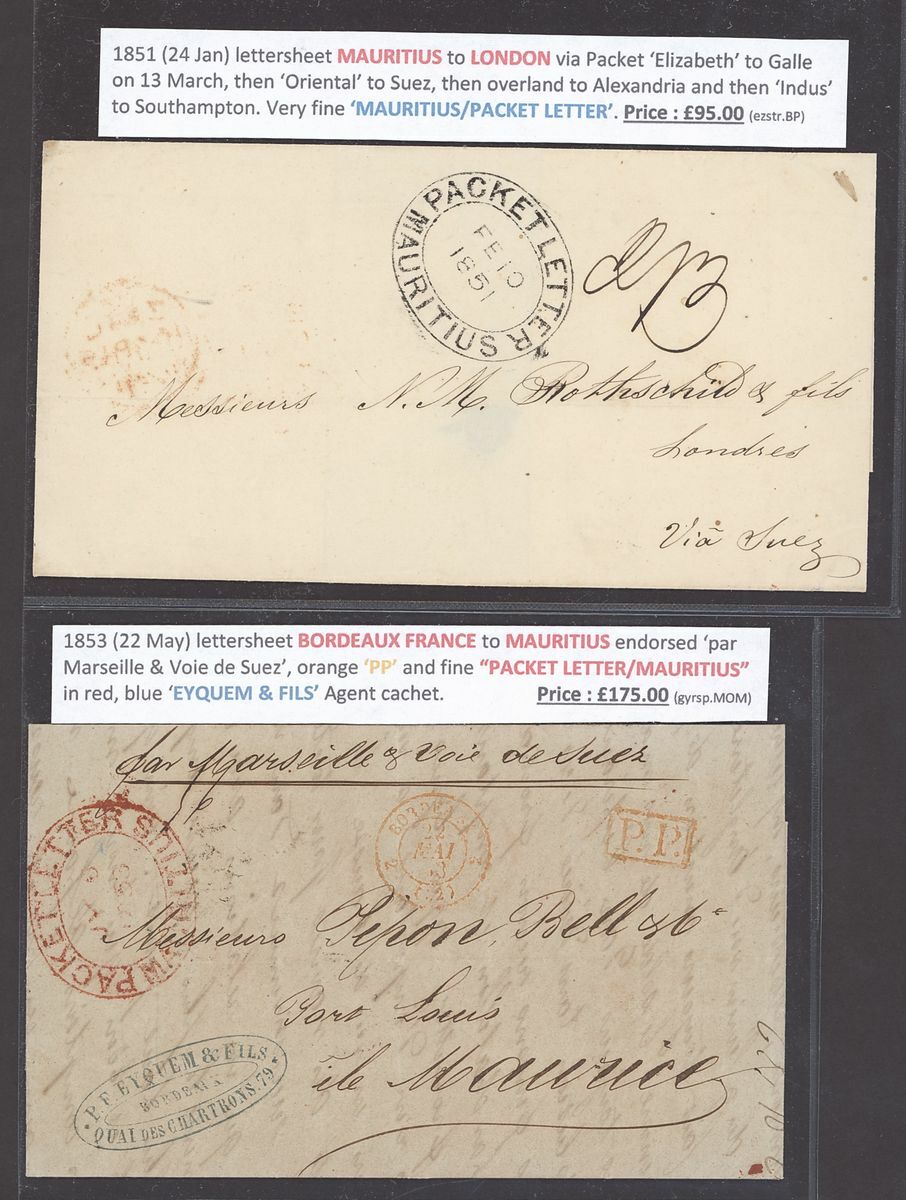 1851 (24 Jan) lettersheet MAURITIUS to LONDON via Packet ‘Elizabeth’ to Galle
on 13 March, then ‘Oriental’ to Suez, then overland to Alexandria and then ‘Indus’
to Southampton. Very fine ‘MAURITIUS/PACKET LETTER’. Price : £95.00 (ezstr.BP)
PACKET LETTER
MAURITIUS
FE 10
1851
Messieurs N. M. Rothschild & fils
Londres
Viã Suez
1853 (22 May) lettersheet BORDEAUX FRANCE to MAURITIUS endorsed ‘par
Marseille & Voie de Suez’, orange ‘PP’ and fine “PACKET LETTER/MAURITIUS”
in red, blue ‘EYQUEM & FILS’ Agent cachet. Price : £175.00 (gyrsp.MOM)
par Marseille & Voie de Suez
PACKET LETTER
MAURITIUS
BORDEAUX
22
MAI
P.P.
Messieurs Pepon, Bell & Ce
Port Louis
île Maurice
P. F. EYQUEM & FILS
BORDEAUX
QUAI DES CHARTRONS. 79